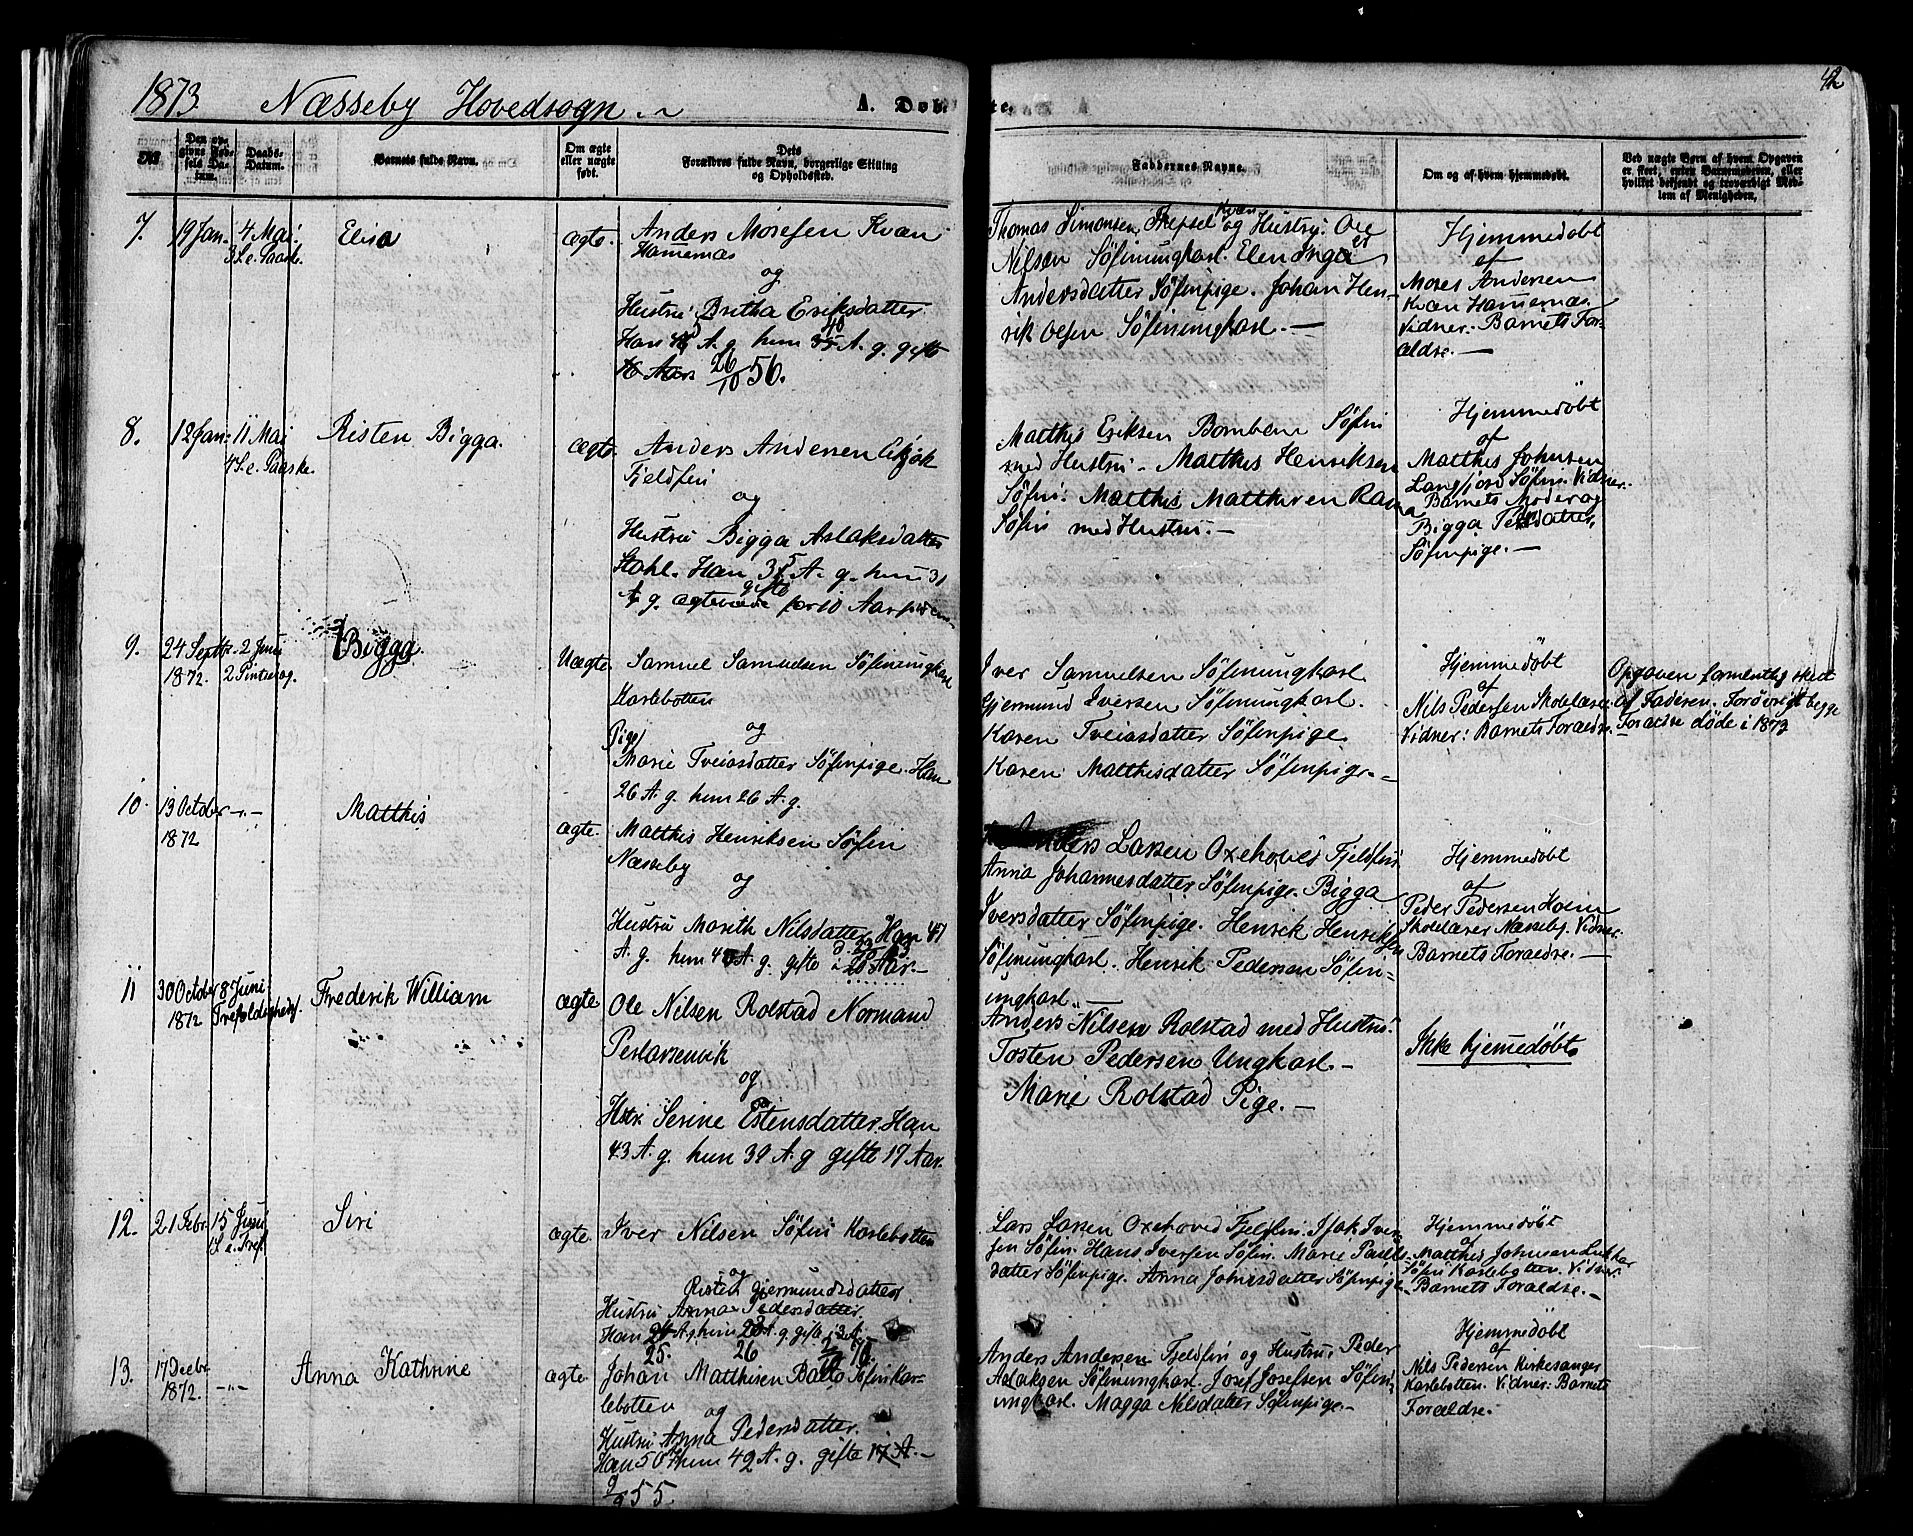 1873. Næsseby Hovedsogn.
A. Døbte.
42
No
Den opgivne Fødsels Datum.
Daabs-Datum.
Barnets fulde Navn.
Om ægte eller uægte født.
Dets Forældres fulde Navn, borgerlige Stilling og Opholdssted.
Faddernes Navne.
Om og af hvem hjemmedøbt.
Ved uægte Børn af hvem Opgaven er skeet, enten Barnemoderen, eller hvilket bekjendt og troværdigt Medlem af Menigheden.
7. 19 Jan. 4 Mai
3 S. e. Paaske.
Elisa
ægte.
Anders Mosesen Kvæn
Hammernæs
og
Hustru Britha Eriksdatter
Han A. g. hun 40 A. g. gift
26/10 56.
Thomas Simonsen Kvæn og Hustru. Ole
Nilsen Søfinungkarl. Elen Inga
Andersdatter Søfinpige. Johan Hen-
rik Olsen Søfinungkarl. —
Hjemmedøbt
af
Moses Andersen
Kvæn Hammernæs.
Vidner. Barnets For-
ældre. —
8. 12 Jan. 11 Mai
4 S. e. Paaske.
Risten Bigga.
ægte.
Anders Andersen
Fjeldfin
og
Hustru Bigga Aslaksdatter
Han 35 A. g. hun 31
A. g. gifte for 10 Aar siden
Matthis Eriksen Bomben Søfin
med Hustru. Matthis Henriksen
Søfin. Matthis Matthisen
Søfin med Hustru. —
Hjemmedøbt
af
Matthis Johnsen
Langfjord Søfin. Vidner.
Barnets Moder og
Bigga Pedersdatter,
Søfinpige. —
9. 24 Septbr. 2 Juni
1872. 2 Pintsedag.
Bigga.
Uægte
Samuel Samuelsen Søfinungkarl
Karlebotten
og
Pige
Marie Tveiasdatter Søfinpige. Han
26 A. g. hun 26 A. g.
Iver Samuelsen Søfinungkarl.
Gjermund Iversen Søfinungkarl.
Karen Tveiasdatter Søfinpige.
Karen Matthisdatter Søfinpige. —
Hjemmedøbt
af
Nils Pedersen Skolelærer
Vidner: Barnets Forældre.
Opgaven skeet
af Faderen. Forøvrigt begge
Forældre døde i 1873
10. 13 October —"—
1872
Matthis
ægte.
Matthis Henriksen Søfin
Næsseby
og
Hustru Marith Nilsdatter Han 47
A. g. hun A. g. gifte
Anders Larsen Oxehoved Fjeldfin
Anna Johannesdatter Søfinpige. Bigga
Iversdatter Søfinpige. Henrik Henriksen
Søfinungkarl. Henrik Pedersen Søfin-
ungkarl. —
Hjemmedøbt
af
Peder Pedersen
Skolelærer Næsseby. Vidner.
Barnets Forældre. —
11 30 October 8 Juni
1872 Trefoldighedsf.
Frederik William
ægte
Ole Nilsen Rolstad Normand
Perlarsenvik
og
Hustru Serine Estensdatter. Han
43 A. g. hun 39 A. g gifte 17 Aar.
Anders Nilsen Rolstad med Hustru.
Tosten Pedersen Ungkarl. —
Marie Rolstad Pige. —
Ikke hjemmedøbt
12. 21 Febr. 15 Juni
1 S. e. Tref.
Siri
ægte.
Iver Nilsen Søfin Karlebotten
og
Risten Gjermundsdatter
Hustru Anna Pedersdatter
Han 24 A. g. hun A. g. gifte i 3 A.
25. 26
Lars Larsen Oxehoved Fjeldfin. Isak Iver
sen Søfin. Hans Iversen Søfin. Marie Pauls-
datter Søfinpige. Anna Johnsdatter Søfinpige
Hjemmedøbt
af
Matthis Johnsen
Søfin Karlebotten. Vidner.
Barnets Forældre. —
13. 17 Decbr.
1872. —"—
Anna Kathrine
ægte.
Johan Matthisen Ballo Søfin Kar-
lebotten
og
Hustru Anna Pedersdatter.
Han 50 A. hun 42 A. g. gifte 17 A. —
55.
Anders Andersen Fjeldfin og Hustru. Peder
Aslaksen Søfinungkarl. Josef Josefsen Søfin-
ungkarl. Magga Nilsdatter Søfinpige. —
Hjemmedøbt
af
Nils Pedersen Kirkesanger
Karlebotten. Vidner: Barnets
Forældre.